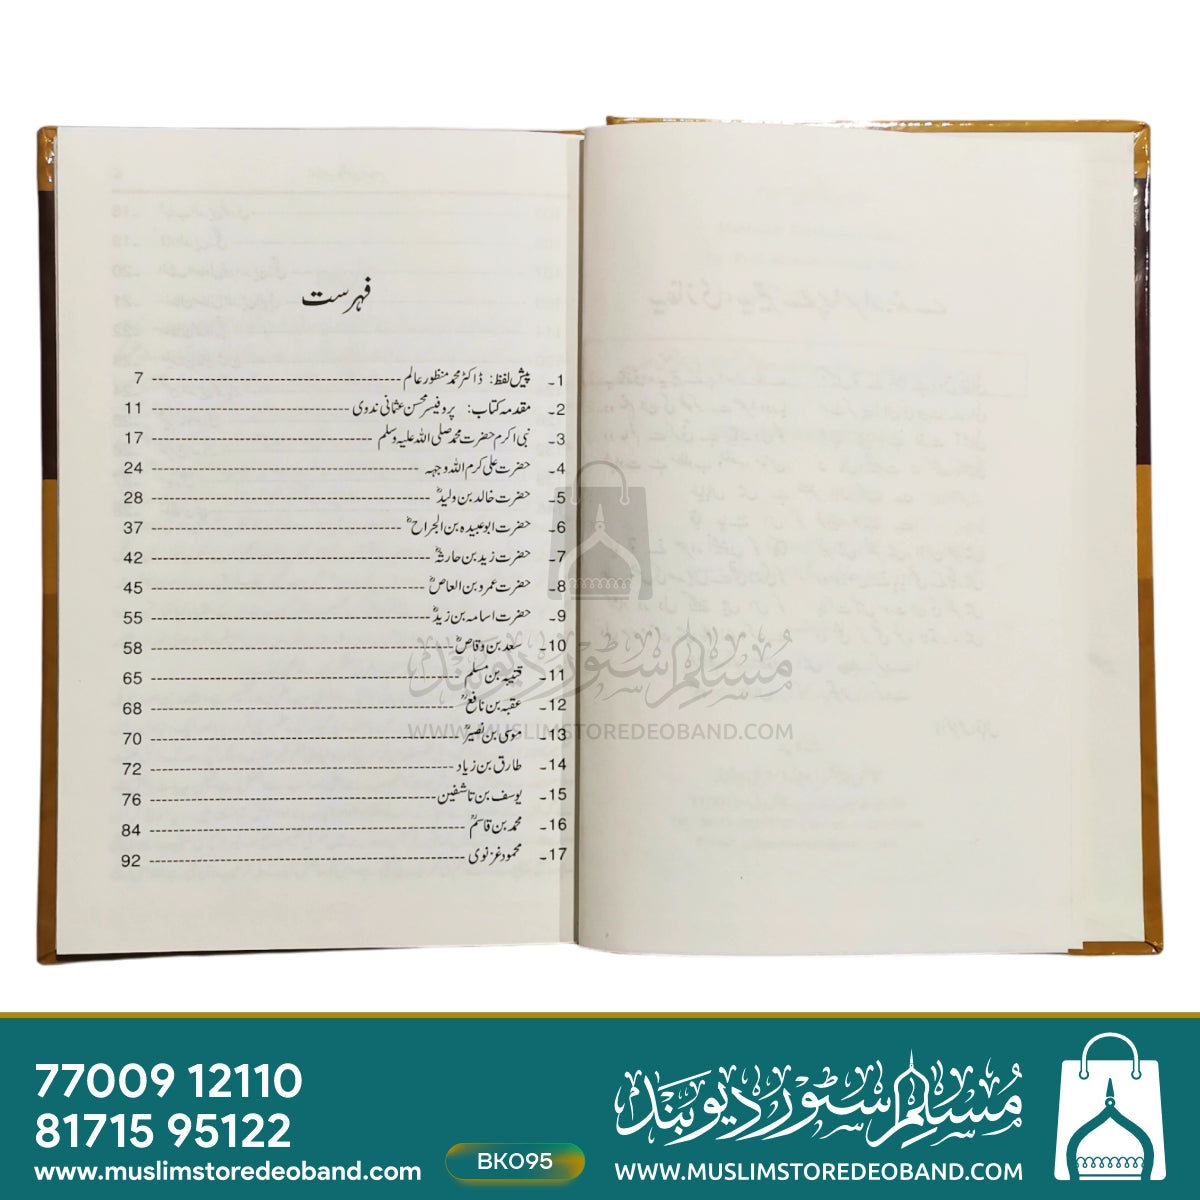 فہرست
1۔ پیش لفظ: ڈاکٹر محمد منظور عالم ---- 7
2۔ مقدمہ کتاب: پروفیسر محسن عثمانی ندوی ---- 11
3۔ نبی اکرم حضرت محمد صلی اللہ علیہ وسلم ---- 17
4۔ حضرت علی کرم اللہ وجہہ ---- 24
5۔ حضرت خالد بن ولیدؓ ---- 28
6۔ حضرت ابو عبیدہ بن الجراحؓ ---- 37
7۔ حضرت زید بن حارثہؓ ---- 42
8۔ حضرت عمرو بن العاصؓ ---- 45
9۔ حضرت اسامہ بن زیدؓ ---- 55
10۔ سعد بن وقاصؓ ---- 58
11۔ قتیبہ بن مسلم ---- 65
12۔ عقبہ بن نافعؒ ---- 68
13۔ موسیٰ بن نصیرؒ ---- 70
14۔ طارق بن زیاد ---- 72
15۔ یوسف بن تاشفین ---- 76
16۔ محمد بن قاسمؒ ---- 84
17۔ محمود غزنوی ---- 92
مسلم سٹور دیوبند
WWW.MUSLIMSTOREDEOBAND.COM
77009 12110
81715 95122
www.muslimstoredeoband.com
BK095
مسلم سٹور دیوبند
WWW.MUSLIMSTOREDEOBAND.COM